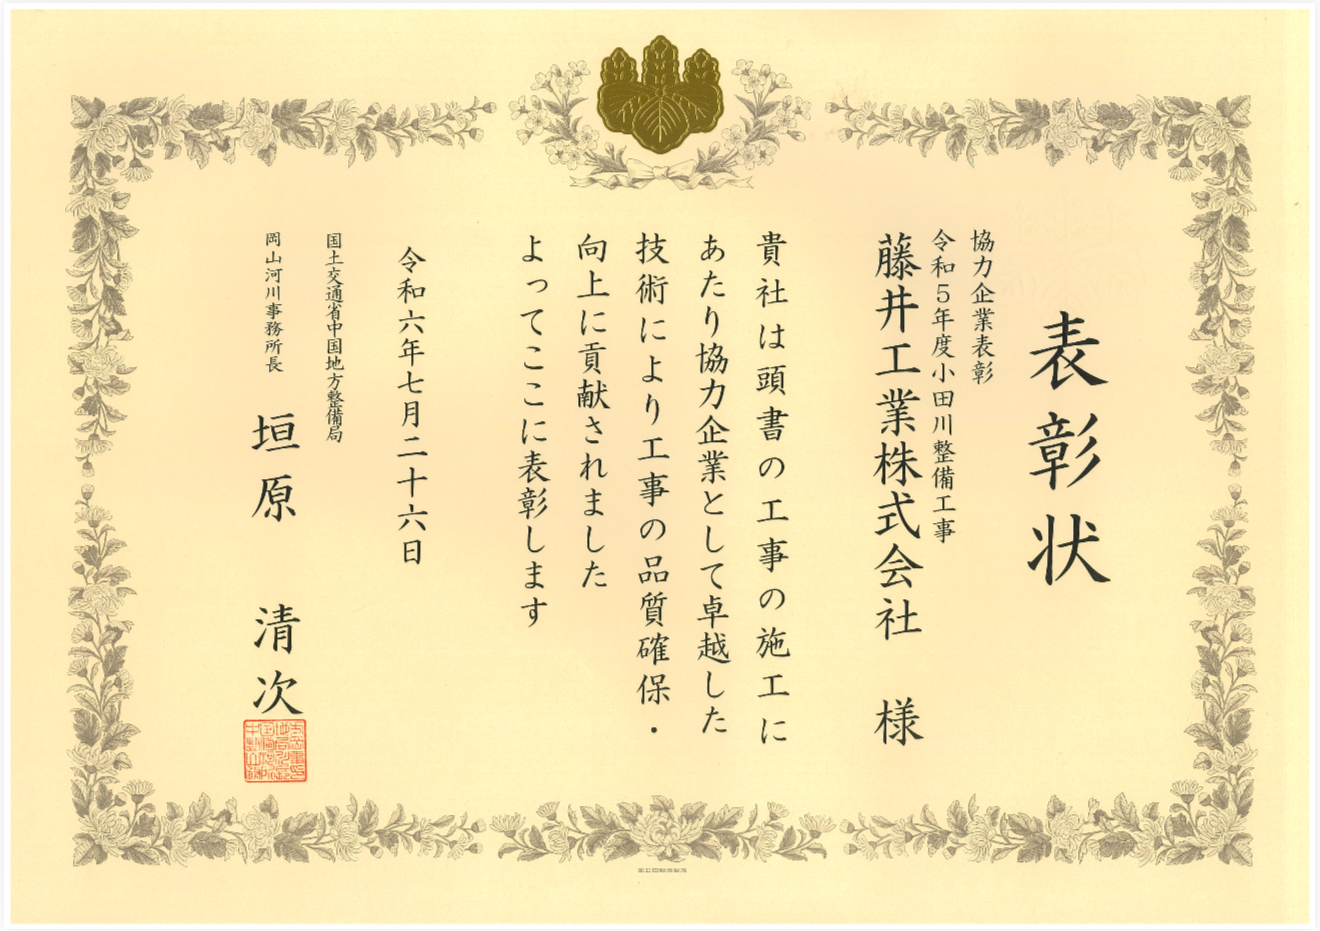 表彰状
協力企業表彰
令和5年度小田川整備工事
藤井工業株式会社 様
貴社は頭書の工事の施工に
あたり協力企業として卓越した
技術により工事の品質確保・
向上に貢献されました
よってここに表彰します
令和六年七月二十六日
国土交通省中国地方整備局
岡山河川事務所長
垣原 清次